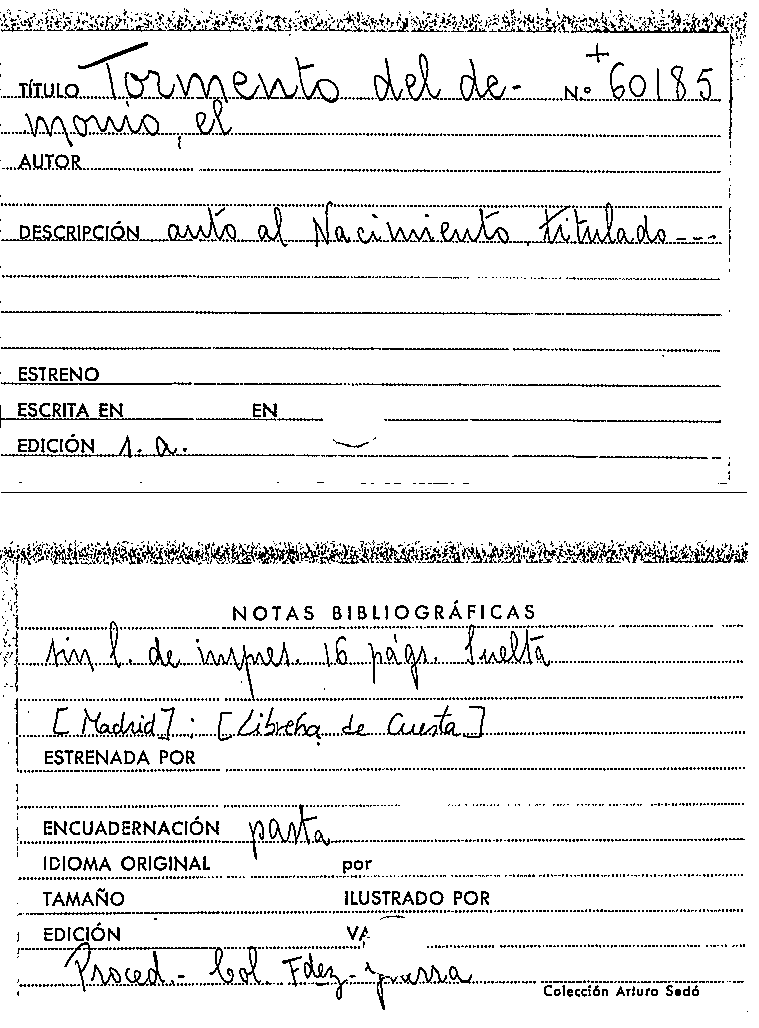 TÍTULO Tormento del de- N.º + 60185
monio, el
AUTOR
DESCRIPCIÓN auto al Nacimiento, titulado---
ESTRENO
ESCRITA EN EN
EDICIÓN s. a.
NOTAS BIBLIOGRÁFICAS
sin l. de impres. 16 págs. Suelta
[Madrid] : [Librería de Cuesta]
ESTRENADA POR
ENCUADERNACIÓN pasta
IDIOMA ORIGINAL por
TAMAÑO ILUSTRADO POR
EDICIÓN VA
Proced.- Col. Fdez-
Colección Arturo Sedó